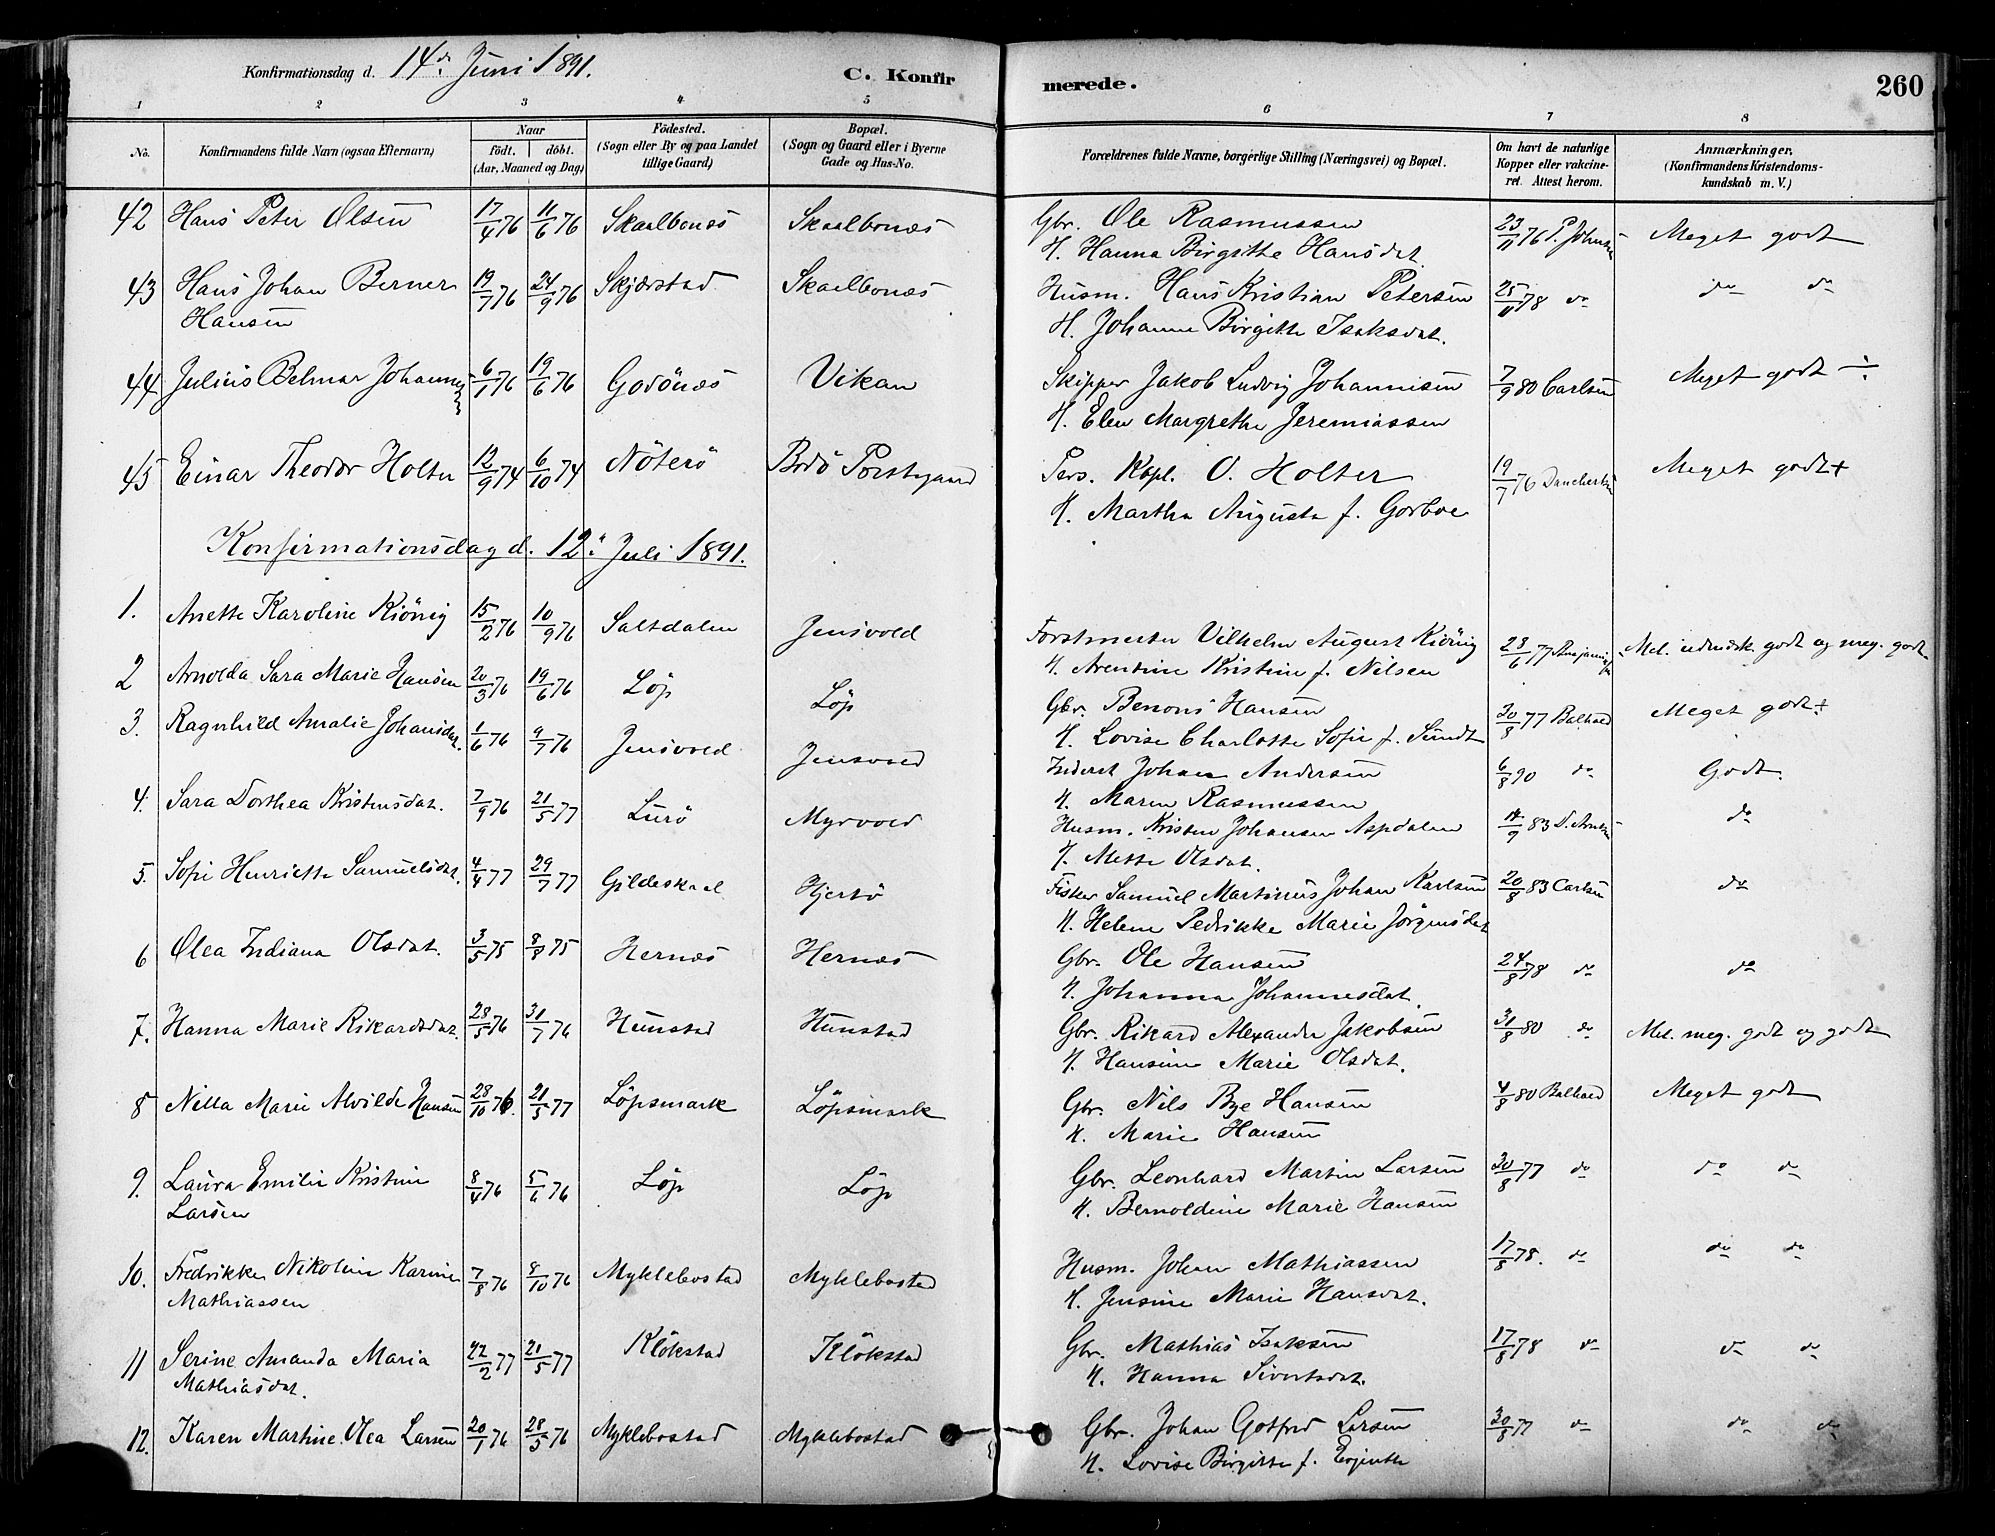 Konfirmationsdag d. 14de Juni 1891. C. Konfir merede. 260
1 2 3 4 5 6 7 8
No. Konfirmandens fulde Navn (ogsaa Efternavn) Naar födt. döbt. (Aar, Maaned og Dag) Födested. (Sogn eller By og paa Landet tillige Gaard) Bopæl. (Sogn og Gaard eller i Byerne Gade og Hus-No. Forældrenes fulde Navne, borgerlige Stilling (Næringsvei) og Bopæl. Om havt de naturlige Kopper eller vakcineret. Attest herom. Anmærkninger, (Konfirmandens Kristendomskundskab m. V.)
42 Hans Peter Olsen 17/4 76 11/6 76 Skaalbones Skaalbones Gbr. Ole Rasmussen 23/11 76 P. Johnsen Meget godt
H. Hanna Birgitte Hansdat.
43 Hans Johan Berner 19/7 76 24/9 76 Skjærstad Skaalbones Husm. Hans Kristian Petersen 25/11 78 do do do
Hansen H. Johanna Birgitte Isaksdat.
44 Julius Belmar Johannes 6/1 76 19/6 76 Godönes Vikan Skipper Jakob Ludvig Johannesen 7/9 80 Carlsen Meget godt ÷
H. Elen Margrethe Jeremiassen
45 Einar Theodor Holter 12/9 74 6/10 74 Nöterö Bodö Præstegaard Pers. Kapl. O. Holter 19/7 76 Meget godt+
H. Martha Augusta f. Gorboe
Konfirmationsdag d. 12te Juli 1891.
1. Anette Karoline Kiönig 15/2 76 10/9 76 Saltdalen Jensvold Forstmester Vilhelm August Kiönig 23/6 77 Mel. udmærk. godt og meg. godt
H. Arentine Kristine f. Nilsen
2 Arnolda Sara Marie Hansen 20/3 76 19/6 76 Löp Löp Gbr. Benoni Hansen 30/8 77 Balhald Meget godt+
H. Lovise Charlotte Sofie f. Sundt
3. Ragnhild Amalie Johansdat. 1/6 76 9/7 76 Jensvold Jensvold Inderst Johan Andersen 6/8 90 do Godt.
H. Maren Rasmussen
4. Sara Dorthea Kristensdat. 7/9 76 21/5 77 Lurö Myrvold Husm. Kristen Johansen Aspdalen 14/9 83 do
H. Mette Olsdat.
5. Sofie Henriette Samuelsdat. 4/4 77 29/7 77 Gildeskaal Hjertö Fisker Samuel Martinus Johan Karlsen 20/8 83 Carlsen do
H. Helene Pedrikke Marie Jörgensdat
6 Olea Indiana Olsdat. 3/5 75 8/8 75 Hernæs Hernæs Gbr. Ole Hansen 24/8 78 do do
H. Johanna Johannesdat.
7. Hanna Marie Rikardsdat. 28/5 76 31/7 76 Hunstad Hunstad Gbr. Rikard Alexander Jakobsen 31/8 80 do Mel. meg. godt og godt
H. Hansine Marie Olsdat.
8 Nilla Marie Alvilde Hansen 28/10 76. 21/5 77 Löpsmark Löpsmark Gbr. Nils Bye Hansen 4/8 80 Balhald Meget godt
H. Marie Hansen
9. Laura Emilie Kristine 8/4 76 5/6 76 Löp Löp Gbr. Leonhard Martin Larsen 30/8 77 do do do
Larsen H. Bernoldine Marie Hansen
10. Fredrikke Nikoline Karine 7/8 76 8/10 76 Myklebostad Myklebostad Husm. Johan Mathiassen 17/8 78. do do do
Mathiassen H. Jensine Marie Hansdat.
11 Serine Amanda Maria 22/2 77 21/5 77 Klökstad Klökstad Gbr. Mathias Isaksen 17/8 78 do do do
Mathiasdat. H. Hanna Sivertsdat.
12. Karen Martine Olea Larsen 20/1 76 28/5 76 Myklebostad Myklebostad Gbr. Johan Gotfred Larsen 30/8 77 do do do
H. Lovise Birgitte f.